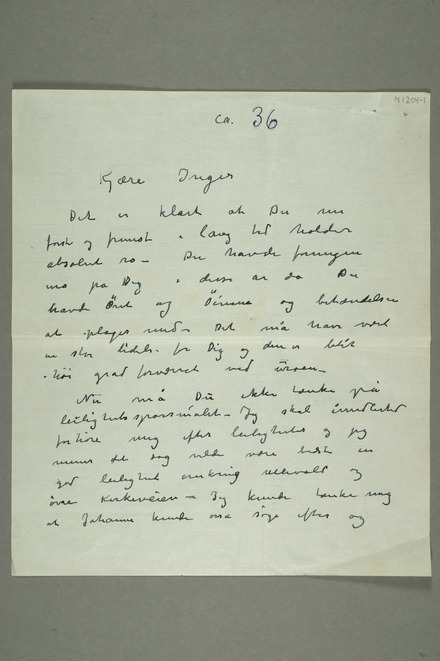 N 1204-1
ca. 36
Kjære Inger
Det er klart at Du nu
først og fremst i lang tid holder
absolut ro – Du havde foruen
uro på Dig i disse år da Du
havde Öret og Öinene og betændelsen
at plages med – Det må have vært
en stor lidelse for Dig og den er blit
i höi grad forværret ved uroen –
Nu må Du ikke tænke på
leilighetsspørsmålet – Jeg skal imidlertid
forhöre mig efter leiligheter og jeg
mener det dog vilde være bedst en
god leilighet omkring Ullevold og
övre Kirkeveien – Jeg kunde tænke mig
at Johanne kunde også söge efter og